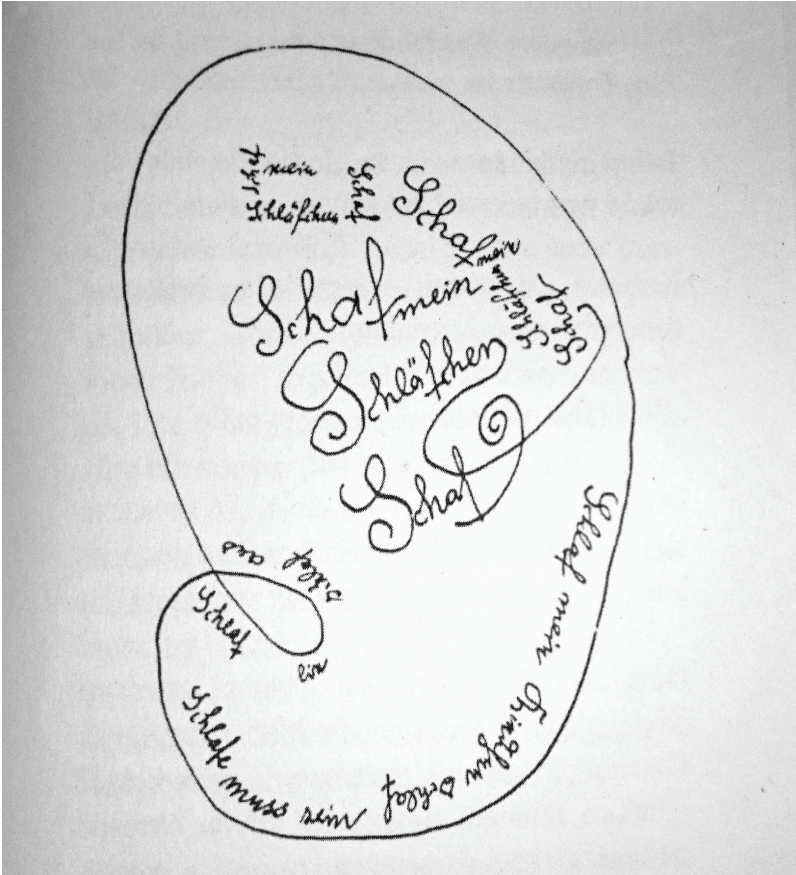 Schaf mein
Schläfchen
Schaf
mein
Schläfchen
Schaf
Schaf
mein
Schläfchen
Schaf
Schlaf mein
Schlaf
Schlafe muss sein
Schlaf
ein
Schlaf
aus